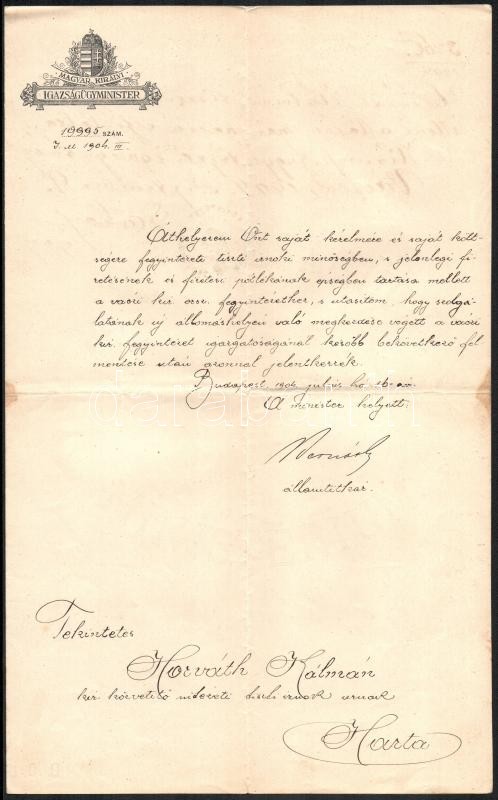 MAGYAR KIRÁLYI
IGAZSÁGÜGYMINISTER
19995 SZÁM.
I. M 1904. III.
Áthelyezem Önt saját kérelmére és saját költ-
ségére fegyintézeti tiszti írnoki minőségben, s jelenlegi fi-
zetésének és fizetési pótlékának épségben tartása mellett
a váczi kir. orsz. fegyintézethez, s utasítom, hogy szolgá-
latának új állomáshelyén való megkezdése végett a váczi
kir. fegyintézet igazgatóságánál később bekövetkező fel
mentése után azonnal jelentkezzék.
Budapest, 1904. július hó 16-án.
A minister helyett:
államtitkár.
Tekintetes
Horváth Kálmán
kir. közvetítő intézeti tiszti írnok úrnak
Harta
darabanth